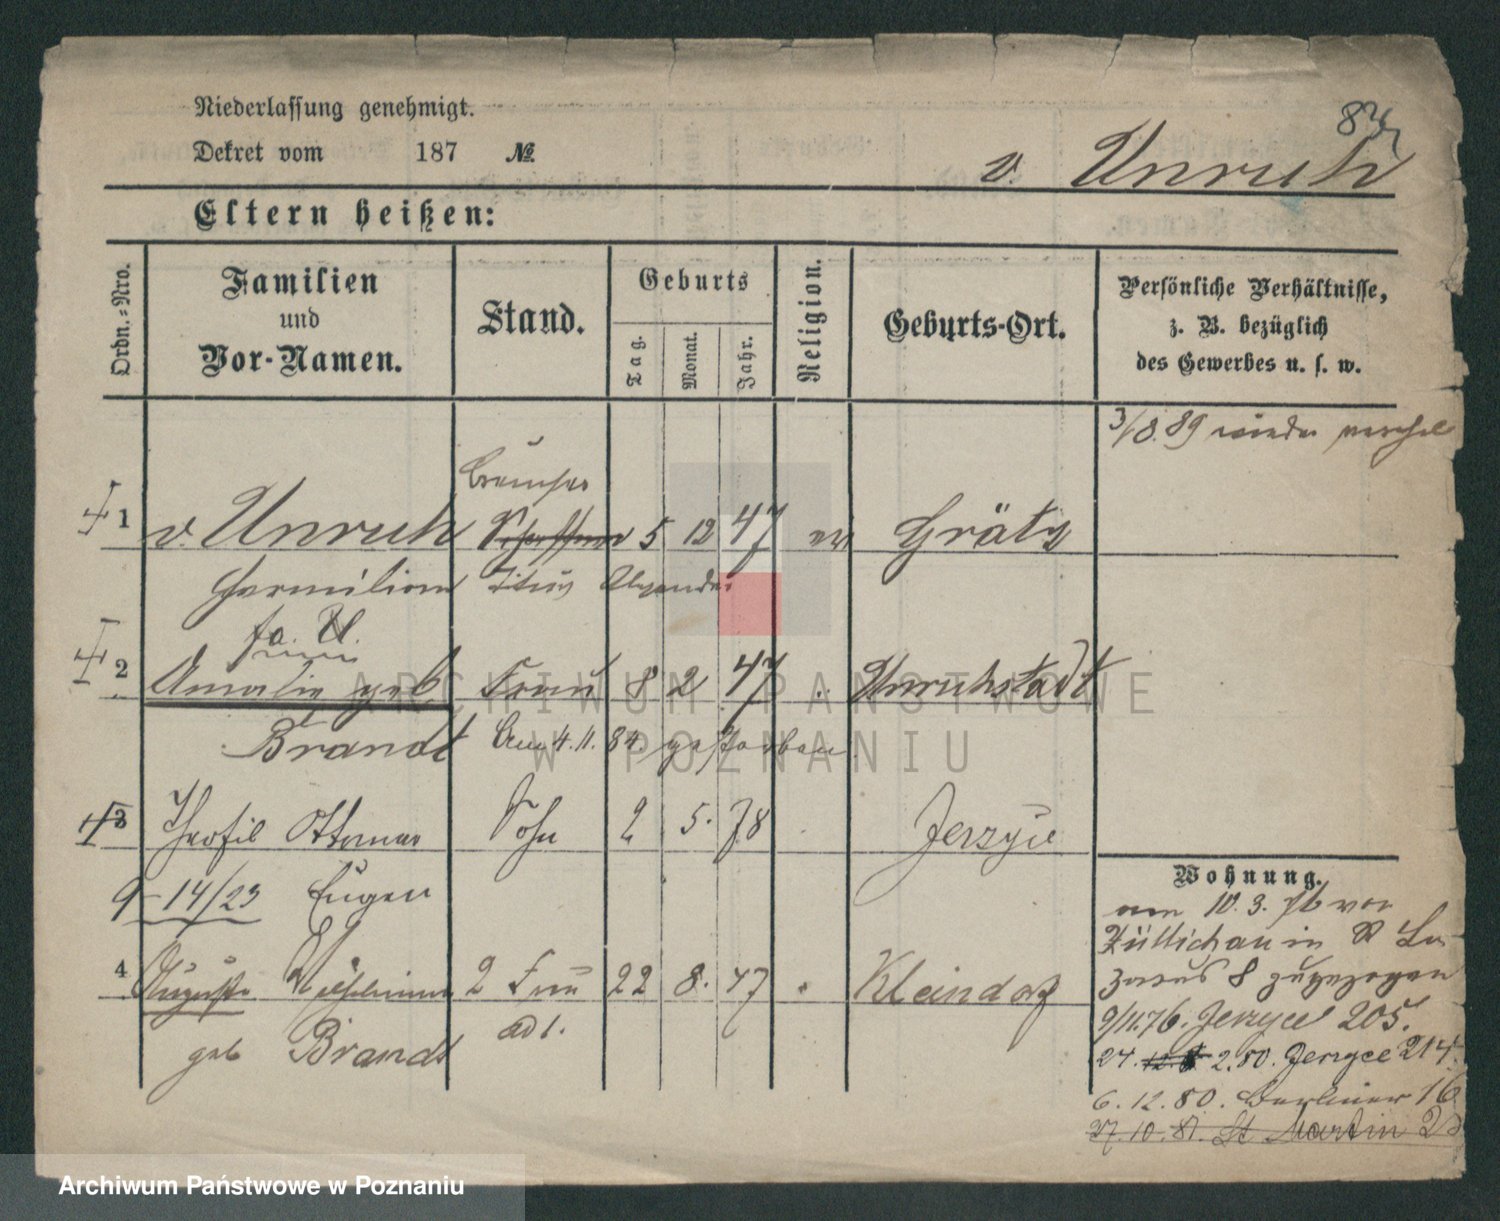 Niederlassung genehmigt.
Dekret vom 187 №
v. Unruh
Eltern heißen:
Ordn.-Nro.
Familien
und
Vor-Namen.
Stand.
Geburts
Tag.
Monat.
Jahr.
Religion.
Geburts-Ort.
Persönliche Verhältnisse,
z. B. bezüglich
des Gewerbes u. s. w.
3/8. 89 wieder
1 v. Unruh 5 12 47 ev Grätz
Titus
fa. U.
2 Amalie geb Frau 8 2 47 Unruhstadt
Brandt Am 4. 11. 84. gestorben
3 Theofil Ottomar Sohn 2 5. 78 Jerzyce
9-14/23 Eugen
4 Auguste Wilhelmine 2 Frau 22 8. 47 Kleindorf
geb Brandt
Wohnung.
am 10. 3. 76 von
Züllichau in St La
zarus 8 zugezogen
9/11. 76. Jerzyce 205.
24. 2. 80. Jerzyce 214.
6. 12. 80. Berliner 16
27. 10. 81. St Martin
ARCHIWUM PAŃSTWOWE
W POZNANIU
Archiwum Państwowe w Poznaniu